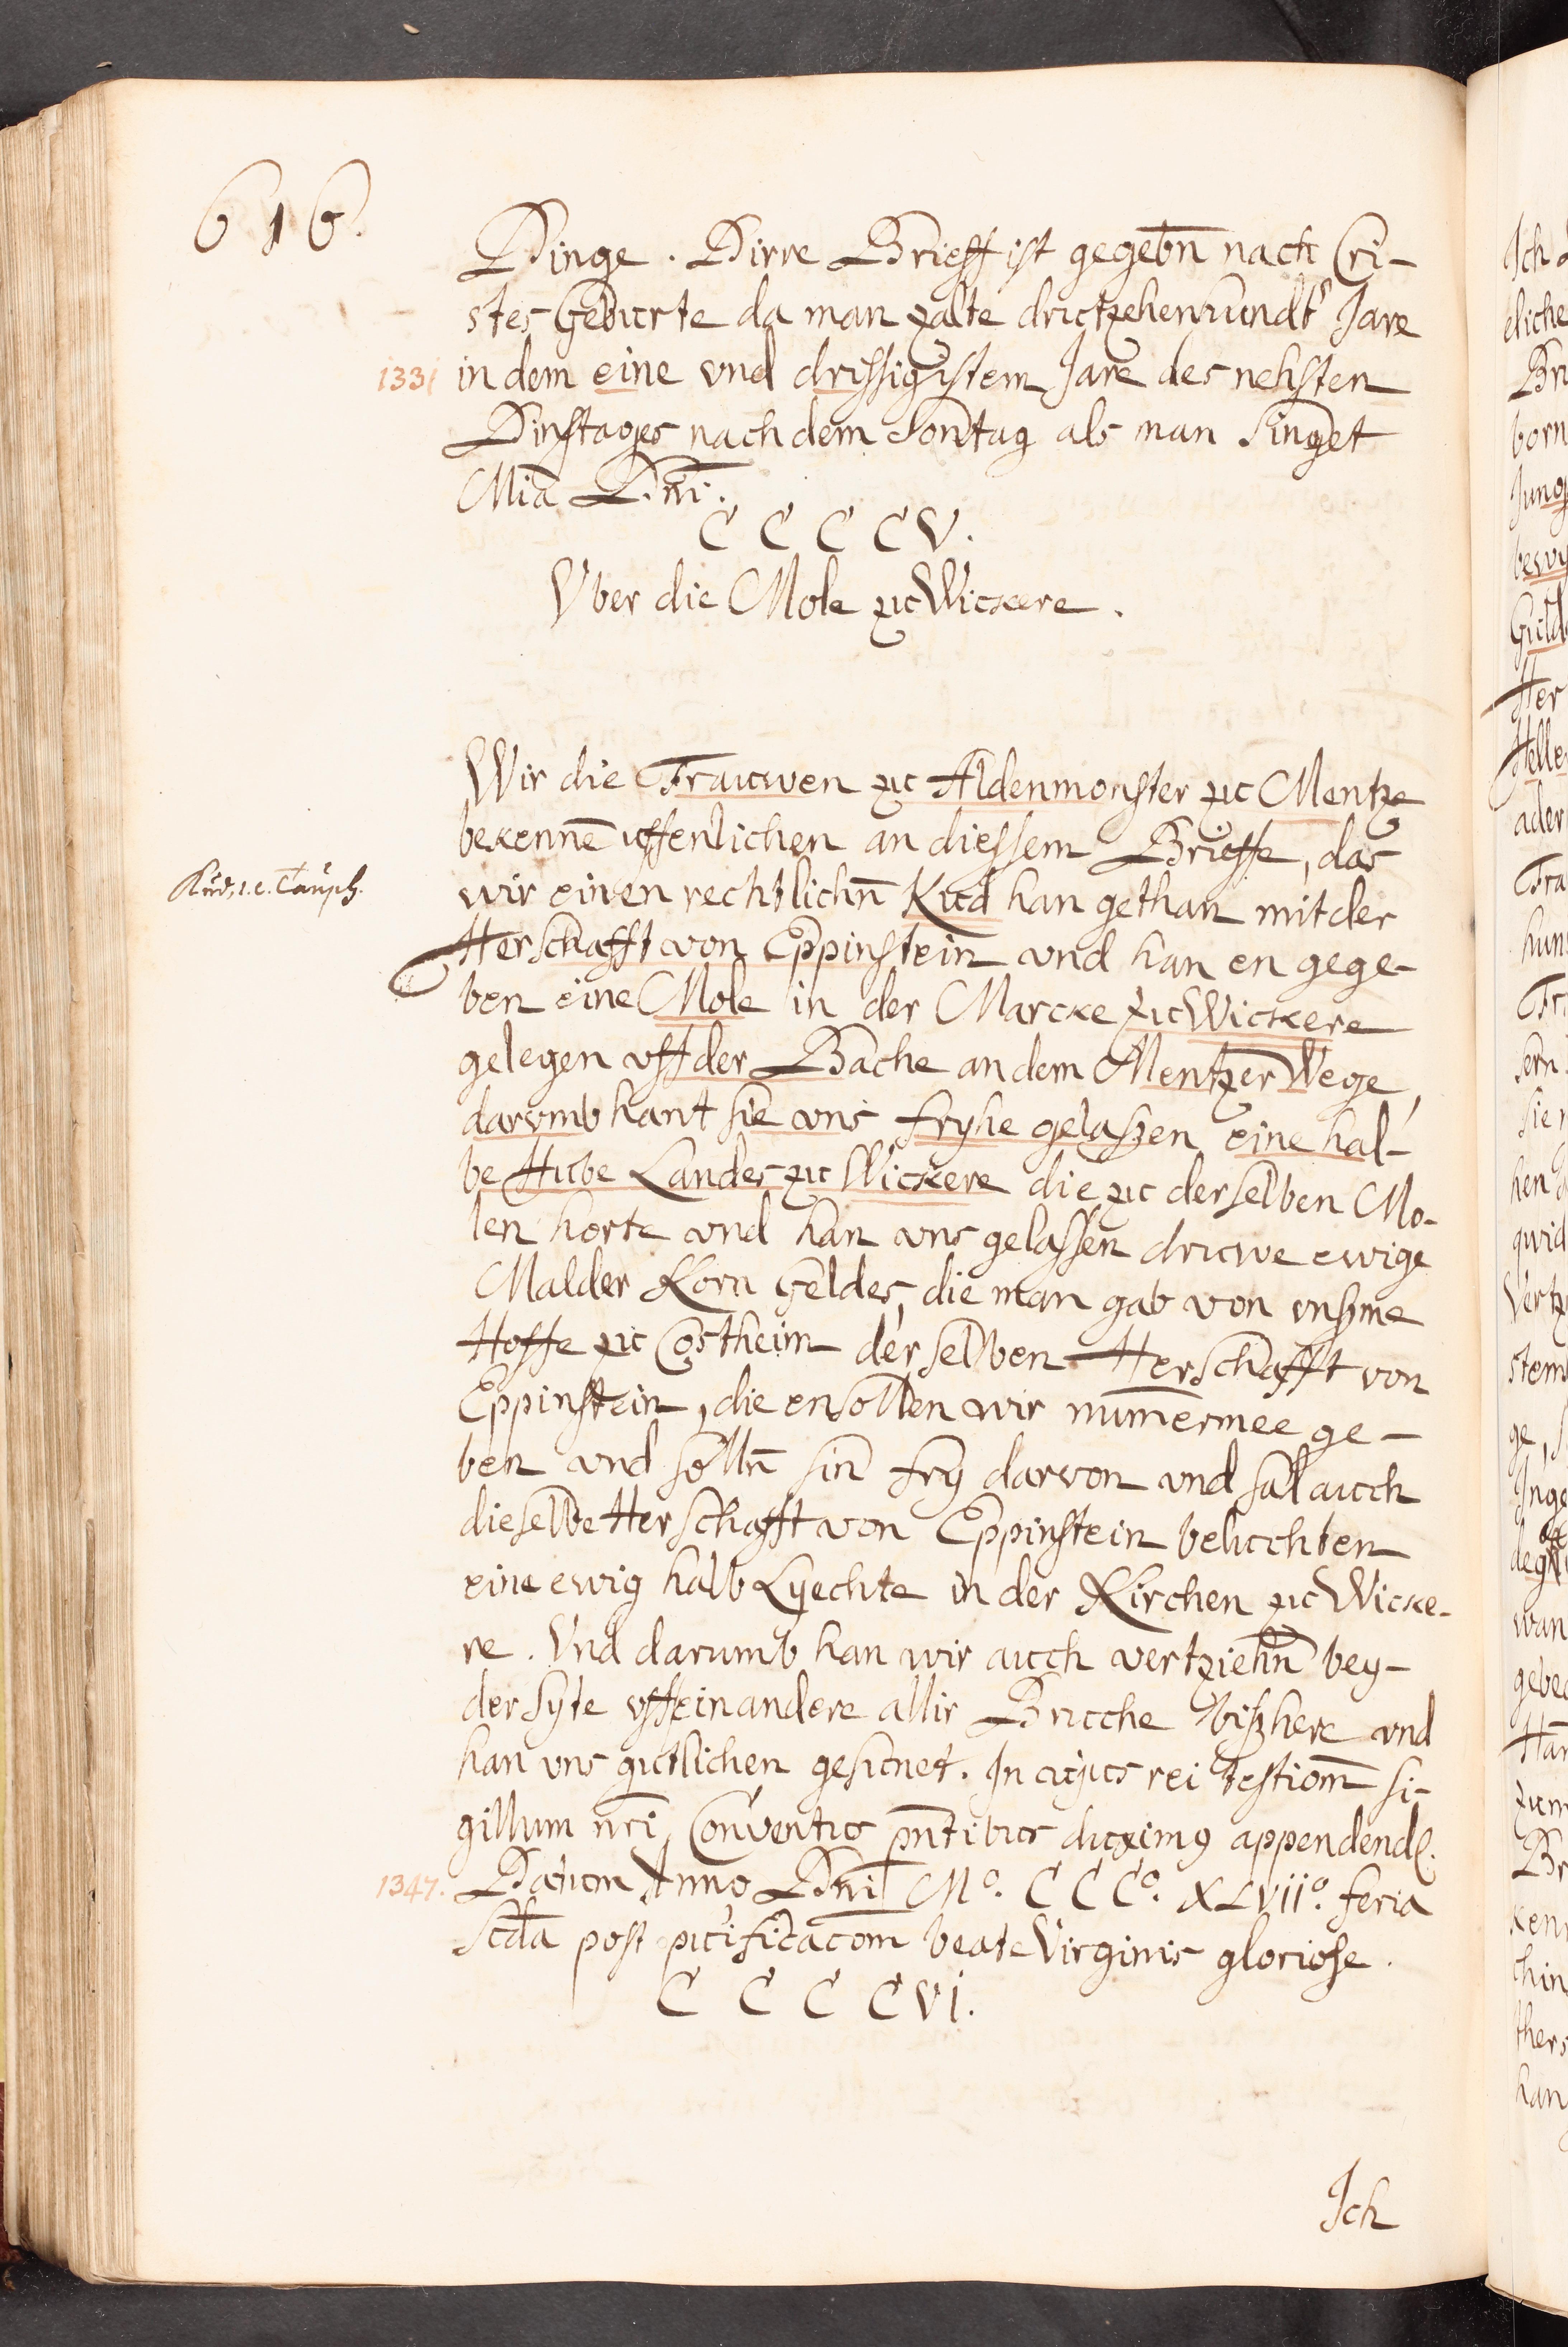 616.
Dinge. Dirre Brieff ist gegebn̄ nach Cri-
stes Geburte da man zalte drutzehenhundt Jare
1331 in dem eine vnd drissigistem Jare des nehsten
Dinstages nach dem Sontag als man singet
Mia Dni.
C C C C V.
Vber die Mole zu Wickere.
Wir die Frauwen zu Aldenmonster zu Mentze
bekennē uffenlichen an diessem Brieffe, das
Kud, i.e. Tausch.
wir einen rechtlichn̄ Kud han gethan mit der
Herschafft von Eppinstein vnd han en gege-
ben eine Mole in der Marcke zu Wickere
gelegen vff der Bache an dem Mentzer Wege,
darvmb hant sie vns fryhe gelaszen eine hal-
be Hube Landes zu Wickere die zu derselben Mo-
len horte vnd han vns gelassen druwe ewige
Malder Korn Geldes, die man gab von vnszme
Hoffe zu Costheim der selben Herschafft von
Eppinstein, die ensollen wir num̄ermee ge-
ben vnd solln̄ sin fry darvon vnd sal auch
dieselbe Herschafft von Eppinstein beluchten
eine ewig halb Lyechte in der Kirchen zu Wicke-
re. Vnd darumb han wir auch vertziehn̄ bey-
der syte vff einandere allir Bruche biszhere vnd
han vns gutlichen gesunet. In cujus rei testiom̄ si-
gillum nr̄i Conventus pn̄tibus duximꝰ appendend.
1347. Datum Anno Dni Mº. C C Cº. XLVIIº. feria
Scda post puificacom̄ beate Virginis gloriose.
C C C C VI.
Ich